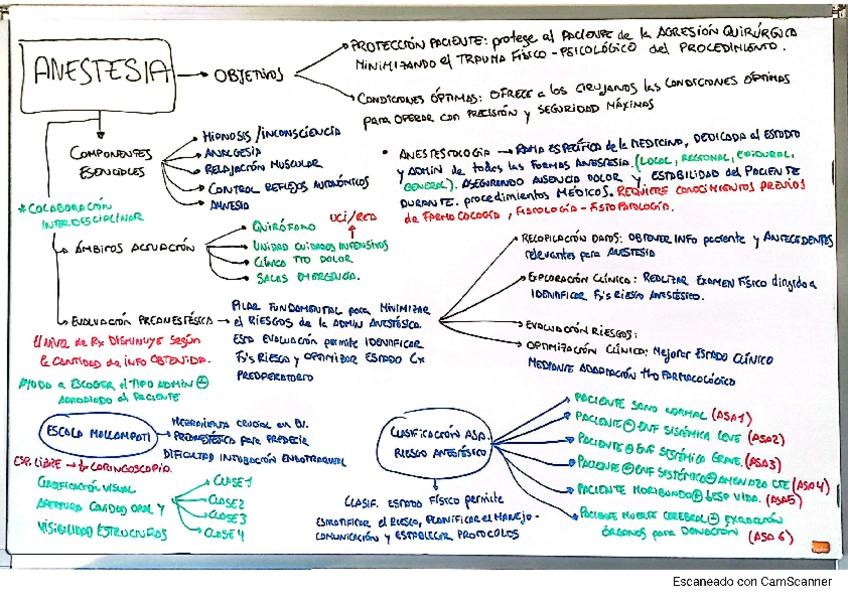 ANESTESIA
OBJETIVOS
PROTECCIÓN PACIENTE: protege al PACIENTE de la AGRESIÓN QUIRÚRGICA
MINIMIZANDO el TRAUMA FÍSICO-PSICOLÓGICO del PROCEDIMIENTO.
CONDICIONES ÓPTIMAS: OFRECE a los CIRUJANOS las CONDICIONES ÓPTIMAS
para OPERAR CON PRECISIÓN y SEGURIDAD MÁXIMAS
COMPONENTES
ESENCIALES
HIPNOSIS/INCONSCIENCIA
ANALGESIA
RELAJACIÓN MUSCULAR
CONTROL REFLEJOS AUTONÓMICOS
AMNESIA
• ANESTESIOLOGÍA → RAMA ESPECÍFICA de la MEDICINA, DEDICADA al ESTUDIO
y ADMIN de todas las FORMAS ANESTESIA (LOCAL, REGIONAL, EPIDURAL,
GENERAL). ASEGURANDO AUSENCIA DOLOR y ESTABILIDAD del PACIENTE
DURANTE procedimientos MÉDICOS. REQUIERE CONOCIMIENTOS PREVIOS
de FARMACOLOGÍA, FISIOLOGÍA-FISIOPATOLOGÍA.
* COLABORACIÓN
INTERDISCIPLINAR
ÁMBITOS ACTUACIÓN
QUIRÓFANO
UCI/REA
UNIDAD CUIDADOS INTENSIVOS
CLÍNICA TTO DOLOR
SALAS EMERGENCIA.
EVALUACIÓN PREANESTÉSICA
PILAR FUNDAMENTAL para MINIMIZAR
el RIESGOS de la ADMIN ANESTÉSICA.
ESTA EVALUACIÓN permite IDENTIFICAR
Fx's RIESGO y OPTIMIZAR ESTADO Cx
PREOPERATORIO
El NIVEL de Rx DISMINUYE SEGÚN
la CANTIDAD de INFO OBTENIDA.
AYUDA a ESCOGER el TIPO ADMIN ⊕
APROPIADO al PACIENTE
RECOPILACIÓN DATOS: OBTENER INFO paciente y ANTECEDENTES
relevantes para ANESTESIA
EXPLORACIÓN CLÍNICA: REALIZAR EXAMEN FÍSICO dirigido a
IDENTIFICAR Fx's RIESGO ANESTÉSICO.
EVALUACIÓN RIESGOS:
OPTIMIZACIÓN CLÍNICA: Mejorar ESTADO CLÍNICO
MEDIANTE ADAPTACIÓN tto FARMACOLÓGICO
ESCALA MALLAMPATI
HERRAMIENTA CRUCIAL en EV.
PREANESTÉSICA para PREDECIR
DIFICULTAD INTUBACIÓN ENDOTRAQUEAL
ESP. LIBRE → LARINGOSCOPIA.
CLASIFICACIÓN VISUAL
APERTURA CAVIDAD ORAL y
VISIBILIDAD ESTRUCTURAS
CLASE 1
CLASE 2
CLASE 3
CLASE 4
CLASIFICACIÓN ASA.
RIESGO ANESTÉSICO
CLASIF. ESTADO FÍSICO permite
ESTRATIFICAR el RIESGO, PLANIFICAR el MANEJO-
COMUNICACIÓN y ESTABLECER PROTOCOLOS
PACIENTE SANO NORMAL (ASA 1)
PACIENTE ⊕ ENF SISTÉMICA LEVE (ASA 2)
PACIENTE ⊕ ENF SISTÉMICA GRAVE. (ASA 3)
PACIENTE ⊕ ENF SISTÉMICA ⊕ AMENAZA CTE (ASA 4)
PACIENTE MORIBUNDO ⊕ ESP VIDA. (ASA 5)
PACIENTE MUERTE CEREBRAL ⊕ EXTRACCIÓN
ÓRGANOS para DONACIÓN (ASA 6)
Escaneado con CamScanner